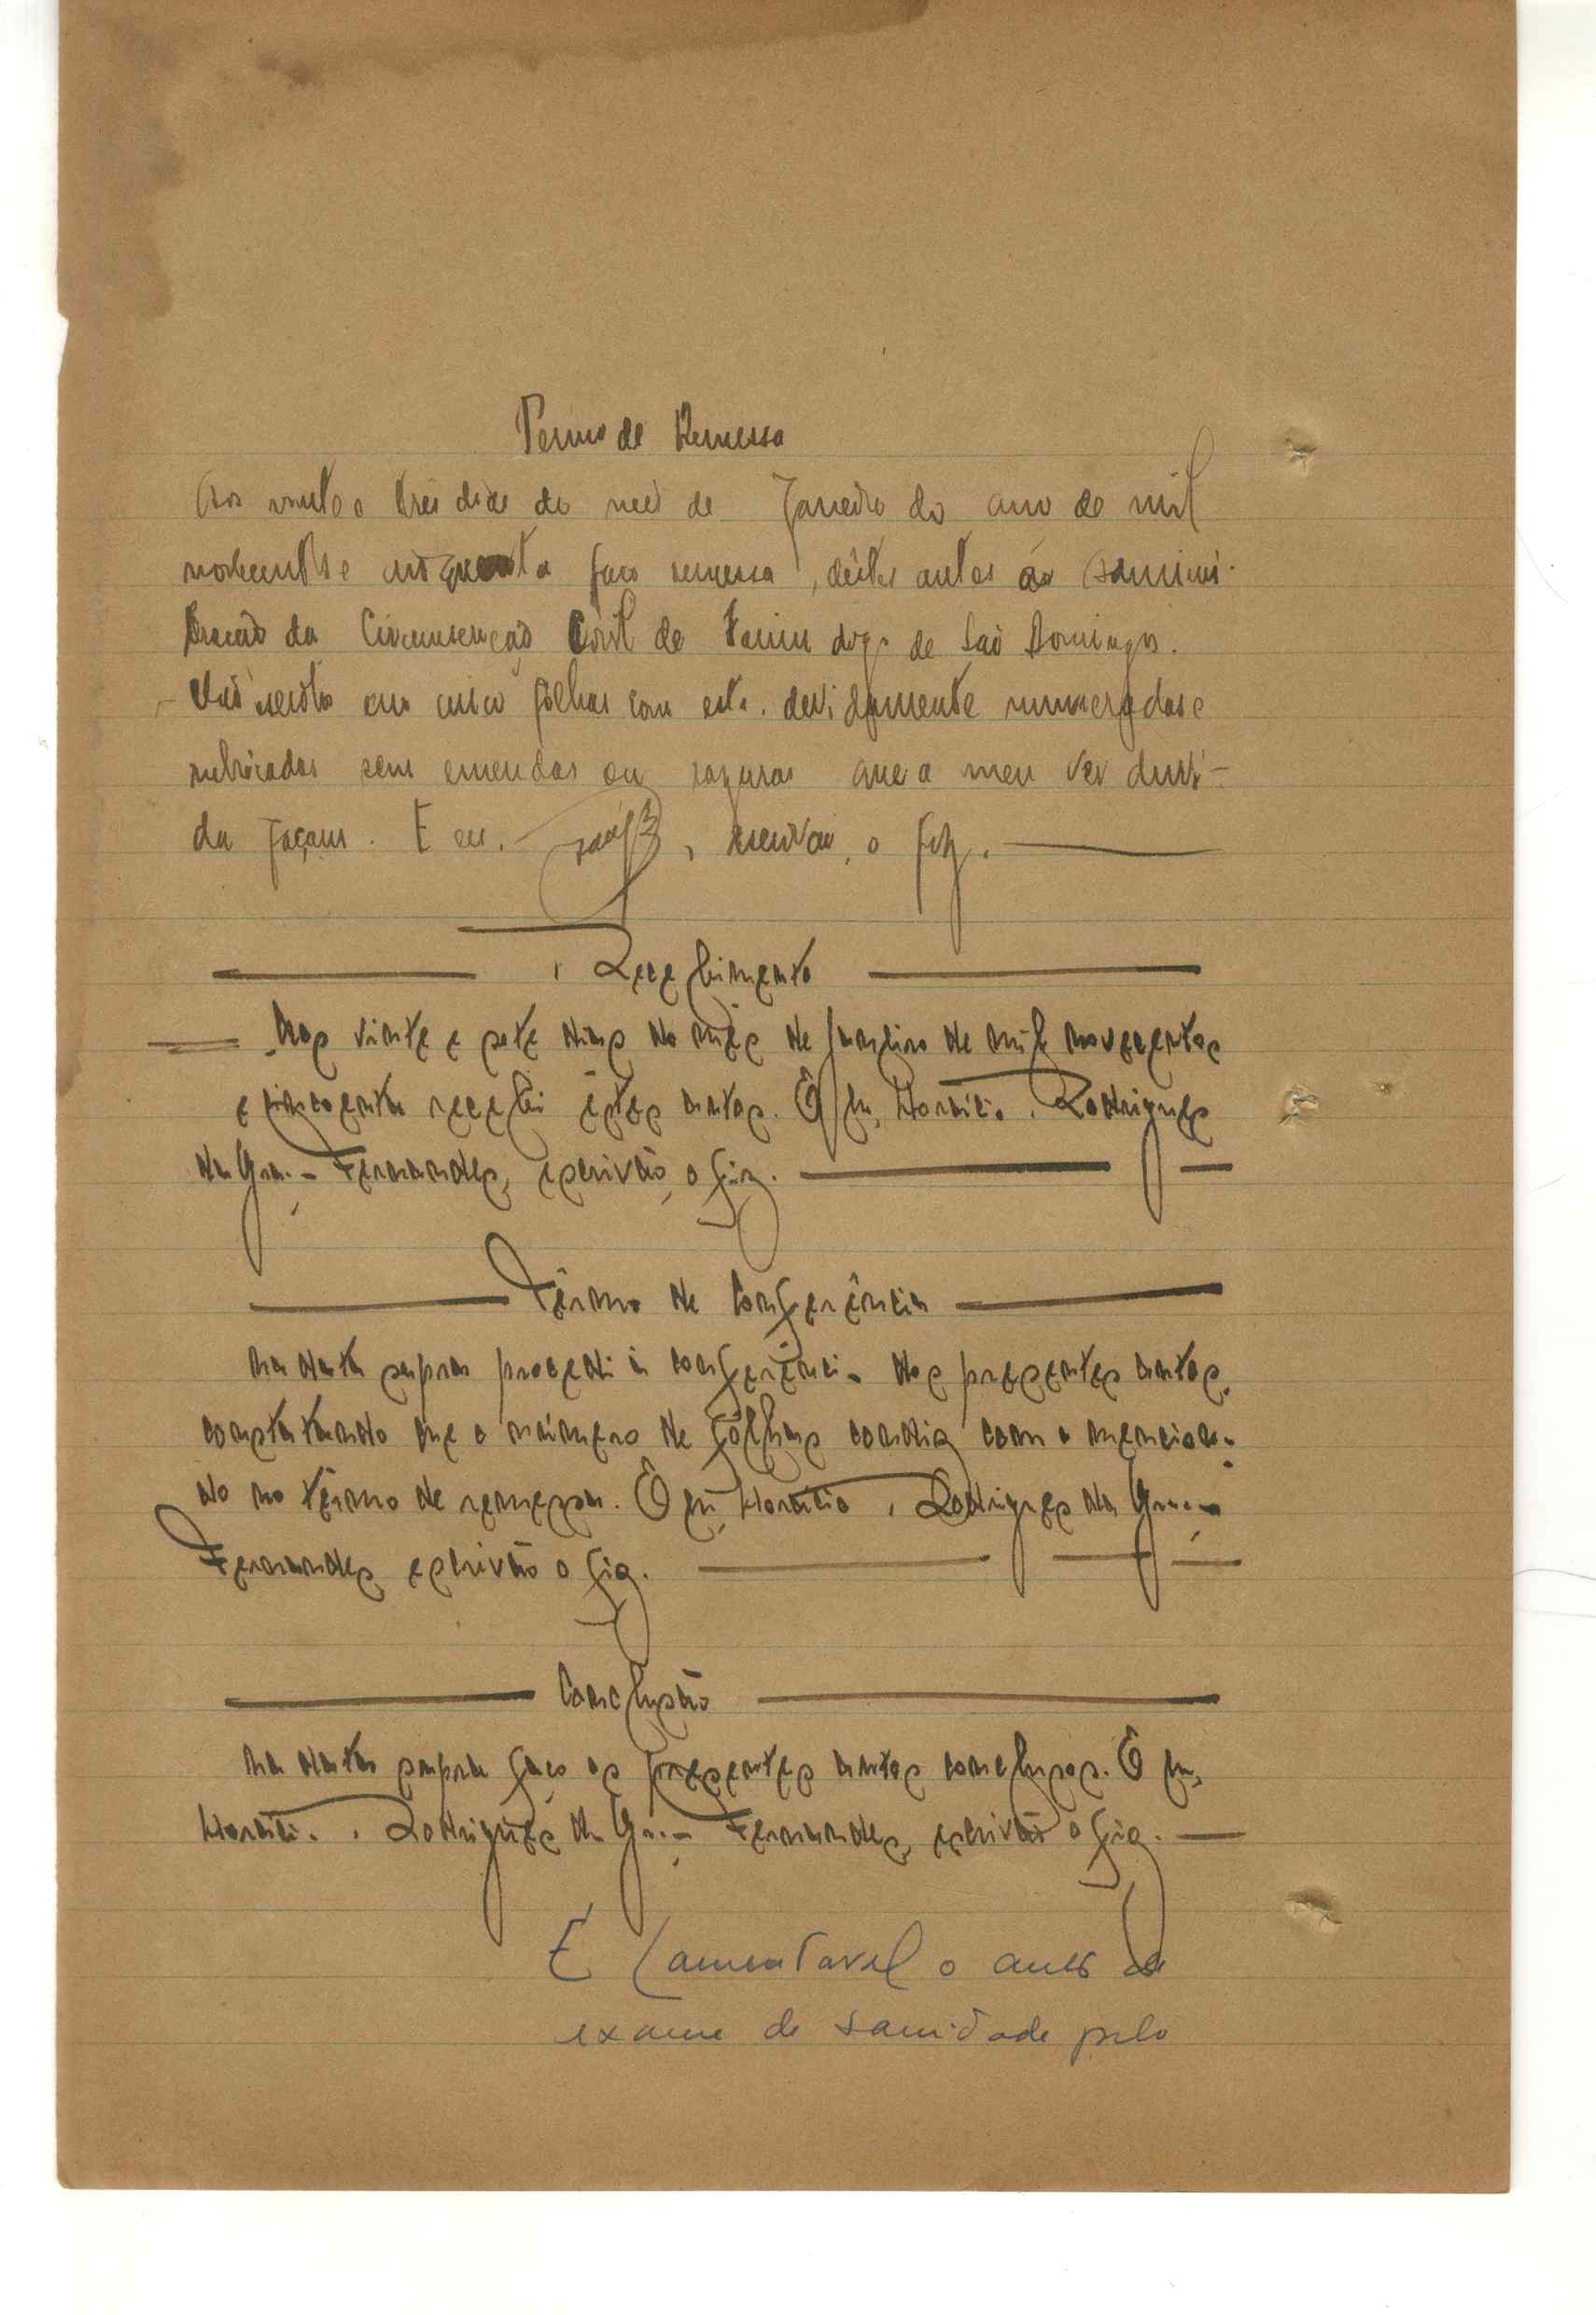 Termo de Remessa
Aos vinte e três dias do mês de Janeiro do ano de mil
novecentos e cinquenta faço remessa, dêstes autos áo Adminis-
tracão da Circunscrição Civil de Fazendas de São Domingos.
Vão escrito em cinco fôlhas com esta. devidamente numeradas e
rubricadas sem emendas ou rasuras que a meu ver duvi-
da façam. E eu, escrivão, o fiz.
Recebimento
Aos vinte e sete dias do mês de Janeiro de mil novecentos
e cincoenta recebi êstes autos. E eu, Horácio Rodrigues
da Fernandes, escrivão, o fiz.
Têrmo de Conferência
Na data supra procedi à conferência dos presentes autos,
constatando que o número de fôlhas condiz com o menciona-
do no têrmo de remessa. E eu, Horácio Rodrigues da
Fernandes, escrivão o fiz.
Conclusão
Na data supra faço os presentes autos conclusos. E eu,
Horácio Rodrigues da Fernandes, escrivão o fiz.
É lamentavel o de
exame de sanidade pelo